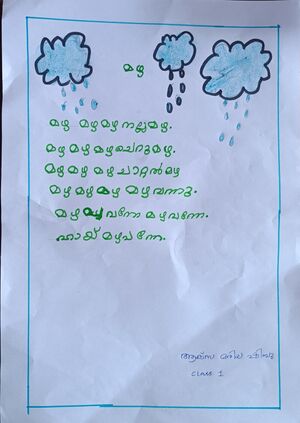 മഴ
മഴ മഴമഴ നല്ലമഴ.
മഴ മഴ മഴചെറുമഴ.
മഴമഴ മഴചാറ്റൽമഴ
മഴ മഴമഴ മഴവന്നു.
മഴമഴവന്നേ മഴവന്നേ.
ഹായ് മഴവന്നേ.
class 1